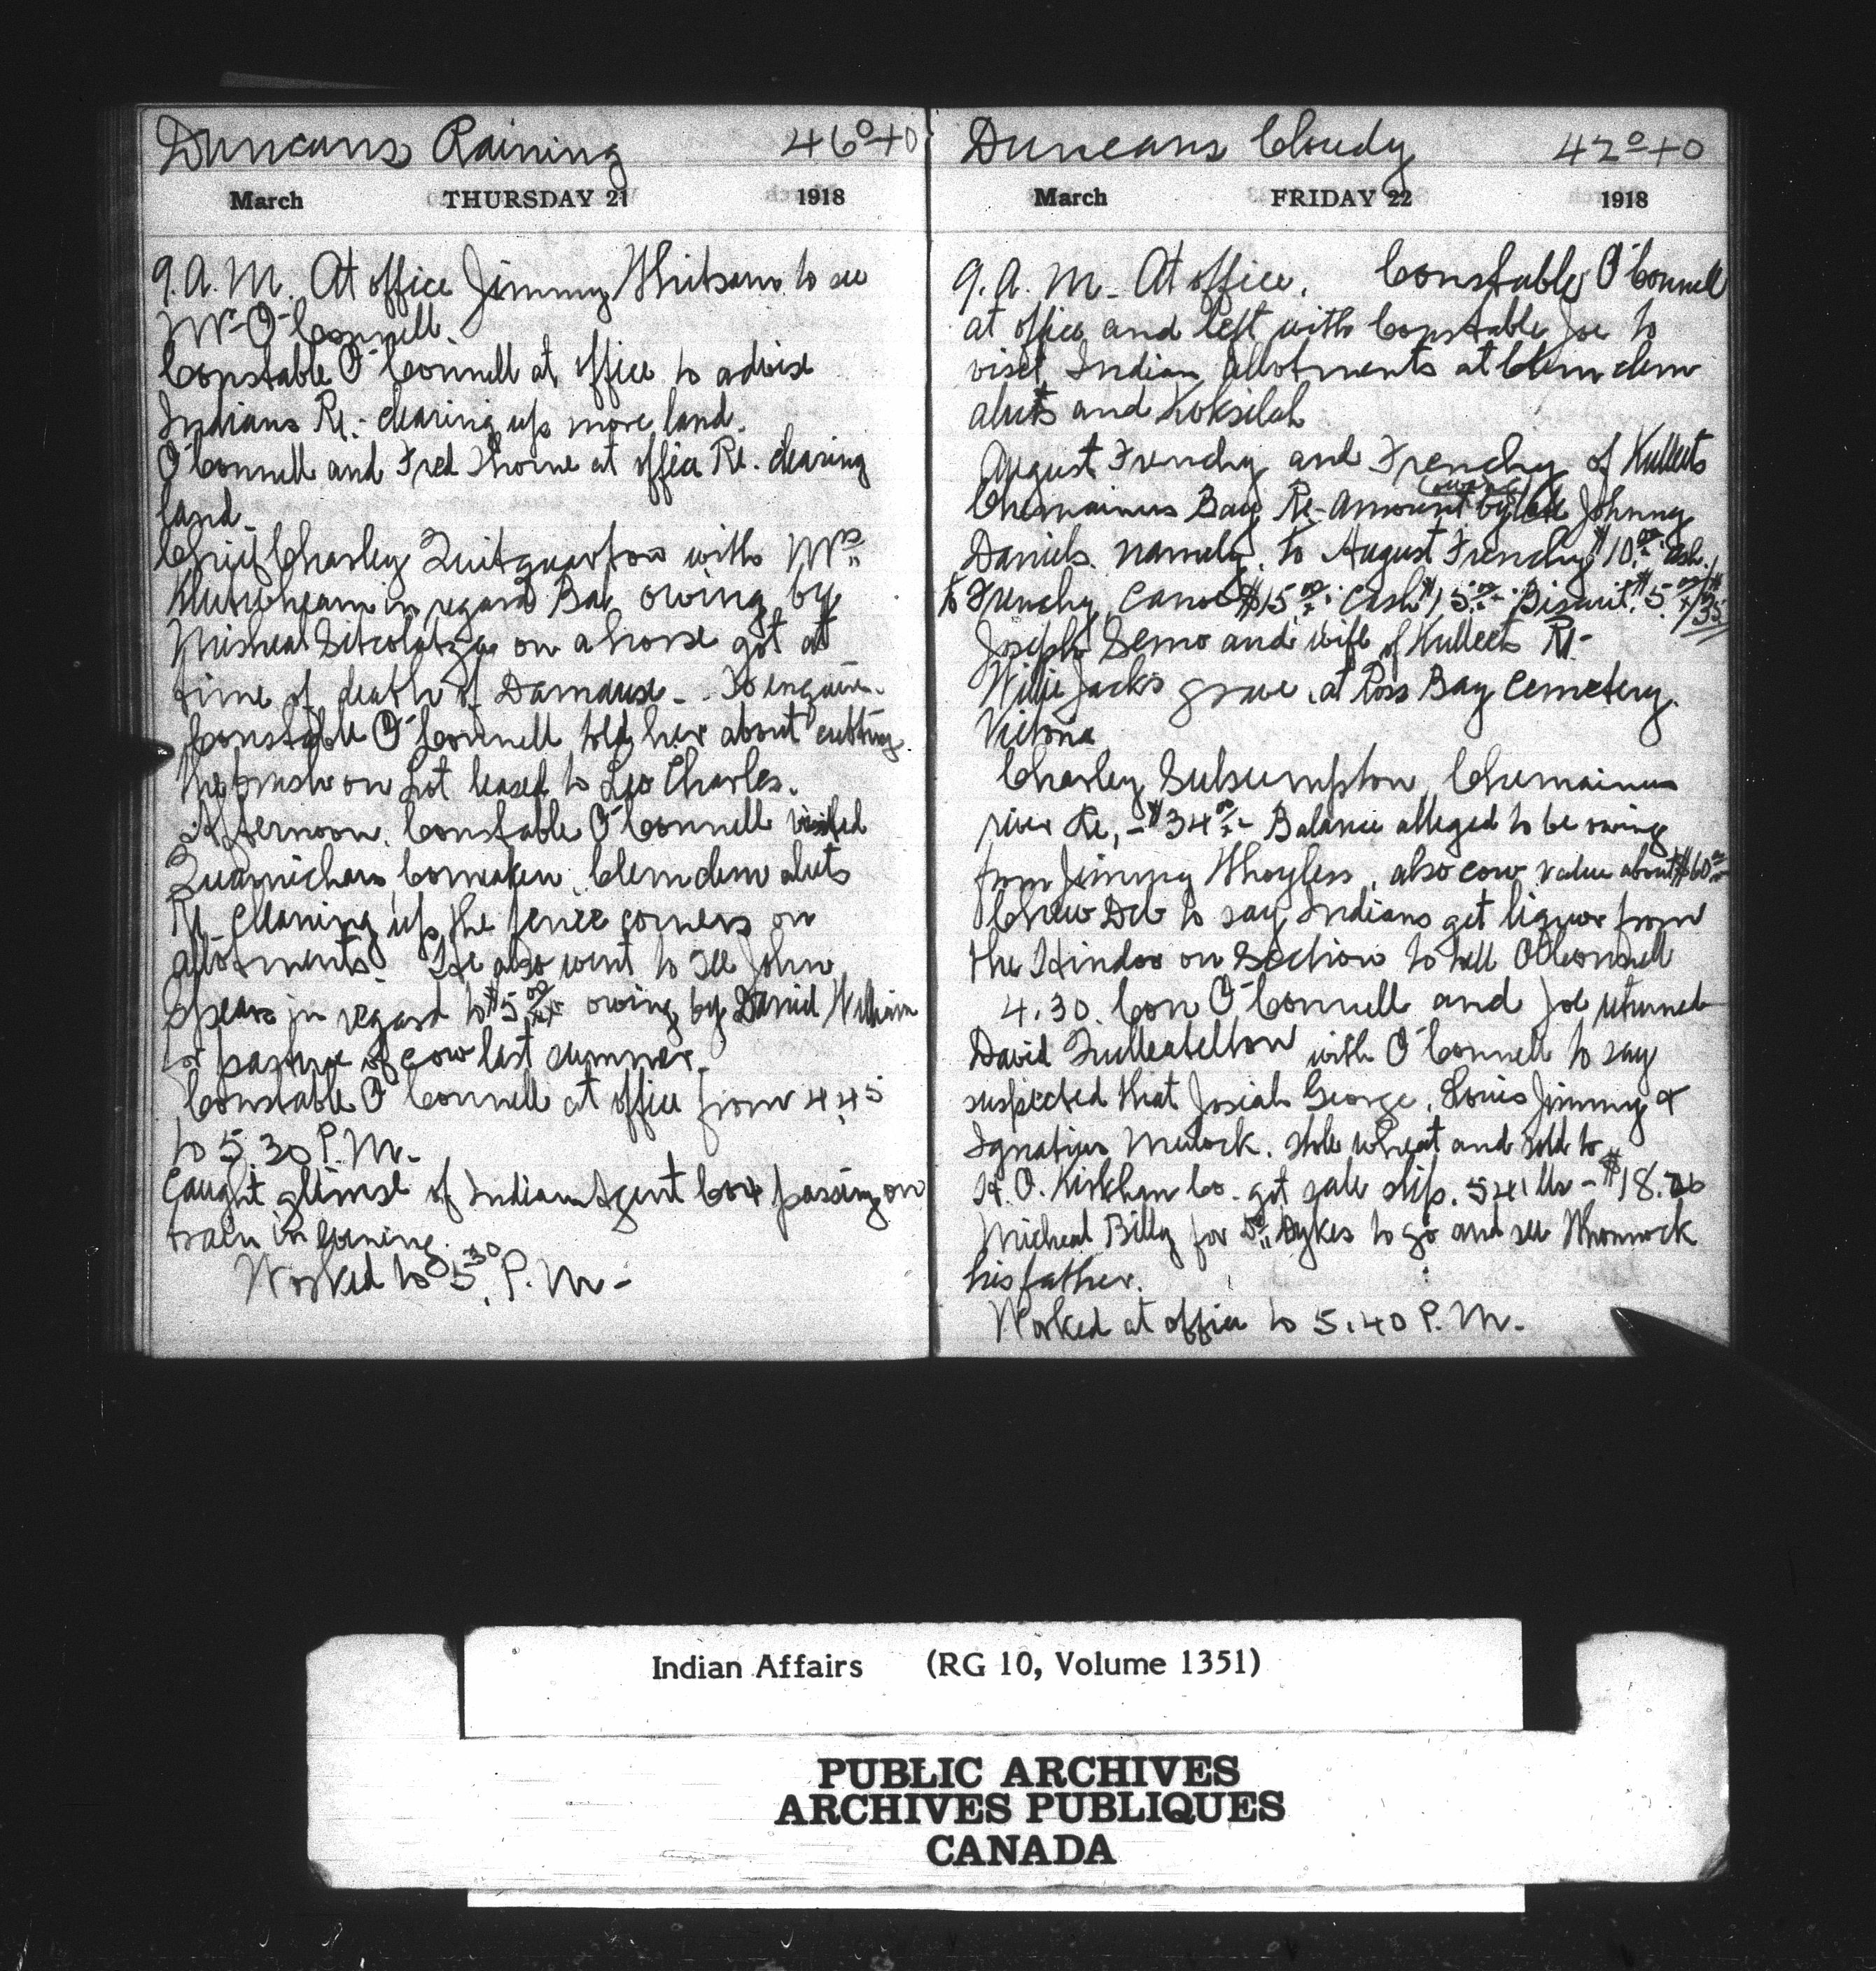 Duncans Raining 46°+0
March THURSDAY 21 1918
9. A. M. At office Jimmy to see
Mr O'Connell.
Constable O'Connell at office to advise
Indians Re:- clearing up more land.
O'Connell and Fred Thorne at office Re. clearing
land.
Chief Charley with Mrs
in regard Bal owing by
on a horse got at
time of death of - To enquire.
Constable O'Connell told her about cutting
the brush on Lot leased to Leo Charles.
Afternoon. Constable O'Connell visited
Quamichan, Comeaken, Clemclem aluts
Re cleaning up the fence corners on
allotments. He also went to see John
Spear in regard to $5 00/xx owing by Daniel William
for pasture of cow last summer.
Constable O'Connell at office from 4.45
to 5.30 P.M.
Caught glimse of Indian Agent Cox passing on
train in evening.
Worked to 5.30 P.M.-
Duncans Cloudy 42°+0
March FRIDAY 22 1918
9. A. M. At office. Constable O'Connell
at office and left with Constable Joe to
visit Indian Allotments at Clem clem
aluts and Koksilah
August Frenchy and Frenchy of Kulleets
Chemainus Bay Re- amount owing by Johnny
Daniels. namely. to August Frenchy $10.00 cash.
to Frenchy Canoe $15.00 : Cash $15.00 - Biscuit $5.00 / $35
Joseph Semo and wife of Kulleets Re-
Willie Jack's grave, at Ross Bay Cemetery.
Victoria
Charley Sulsumpton, Chemainus
river Re,- $34.00 - Balance alleged to be owing
from Jimmy, also cow value about $60.00
Chew Deb to say Indians get liquor from
the Hindoo on Section to tell O'Connell
4.30. Con O'Connell and Joe returned
David with O'Connell to say
suspected that Josiah George, Louis Jimmy &
Ignatius. stole wheat and sold to
H. O. Kirkham Co. got sale slip. 541 lbs - $18.
Micheal Billy for Dr Dykes to go and see
his father.
Worked at office to 5.40 P.M.
Indian Affairs (RG 10, Volume 1351)
PUBLIC ARCHIVES
ARCHIVES PUBLIQUES
CANADA